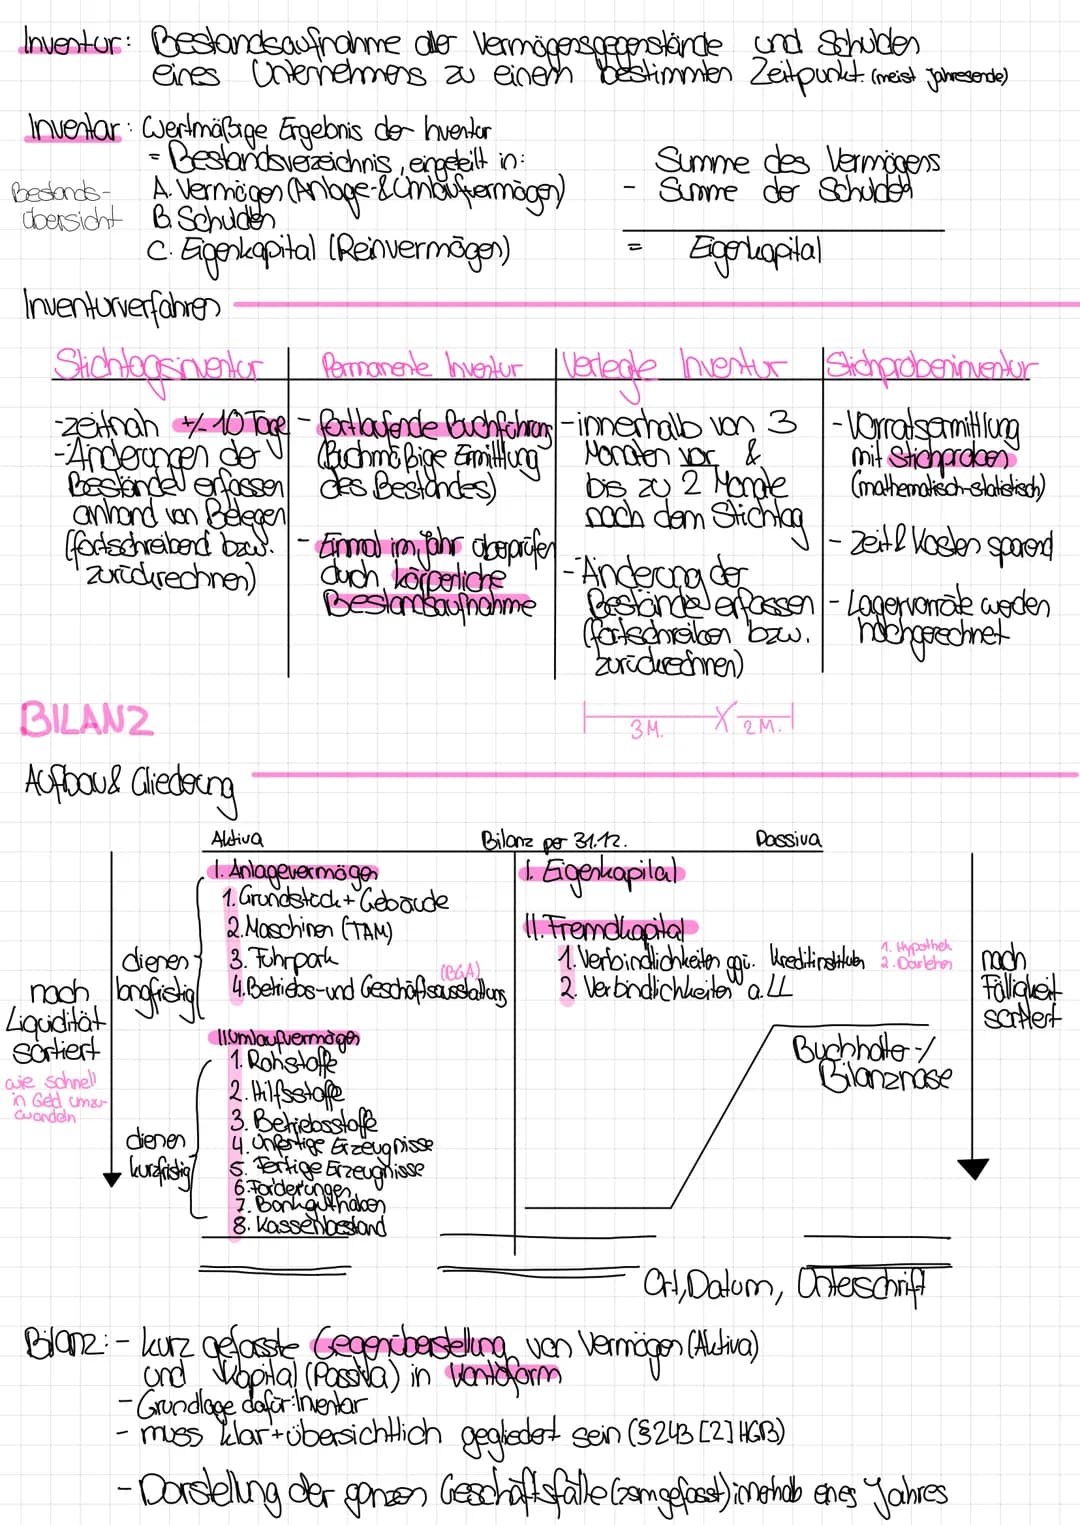 Inventur: Bestandsaufnahme aller Vermögensgegenstände und Schulden
eines Unternehmens zu einem bestimmten Zeitpunkt. (meist Jahresende)
Inventar: Wertmäßige Ergebnis der Inventur
= Bestandsverzeichnis, eingeteilt in:
A. Vermögen (Anlage- & Umlaufvermögen)
B. Schulden
C. Eigenkapital (Reinvermögen)
Bestands-
übersicht
Summe des Vermögens
- Summe der Schulden
= Eigenkapital
Inventurverfahren
Stichtagsinventur
-zeitnah +/- 10 Tage
-Änderungen der
Bestände erfassen
anhand von Belegen
(fortschreibend bzw.
zurückrechnen)
Permanente Inventur
- fortlaufende Buchführung
(Buchmäßige Ermittlung
des Bestandes)
- Einmal im Jahr überprüfen
durch körperliche
Bestandsaufnahme
Verlegte Inventur
-innerhalb von 3
Monaten vor &
bis zu 2 Monate
nach dem Stichtag
-Änderung der
Bestände erfassen
(fortschreiben bzw.
zurückrechnen)
Stichprobeninventur
- Vorratsermittlung
mit Stichproben
(mathematisch-statistisch)
- Zeit & Kosten sparend
- Lagervorräte werden
hochgerechnet
3 M. X 2 M.
BILANZ
Aufbau & Gliederung
Aktiva Bilanz per 31.12. Passiva
I. Anlagevermögen
1. Grundstück + Gebäude
2. Maschinen (TAM)
3. Fuhrpark
4. Betriebs- und Geschäftsausstattung
(BGA)
II Umlaufvermögen
1. Rohstoffe
2. Hilfsstoffe
3. Betriebsstoffe
4. Unfertige Erzeugnisse
5. Fertige Erzeugnisse
6. Forderungen
7. Bankguthaben
8. Kassenbestand
nach
Liquidität
sortiert
wie schnell
in Geld umzu-
wandeln
dienen
langfristig
dienen
kurzfristig
I. Eigenkapital
II. Fremdkapital
1. Verbindlichkeiten ggü. Kreditinstituten
1. Hypothek
2. Darlehen
2. Verbindlichkeiten a. LL
nach
Fälligkeit
sortiert
Buchhalter-/
Bilanznase
Ort, Datum, Unterschrift
Bilanz: - kurz gefasste Gegenüberstellung von Vermögen (Aktiva)
und Kapital (Passiva) in Kontoform
- Grundlage dafür: Inventar
- muss klar + übersichtlich gegliedert sein (§ 243 [2] HGB)
- Darstellung der ganzen Geschäftsfälle (zsmgefasst) innerhalb eines Jahres